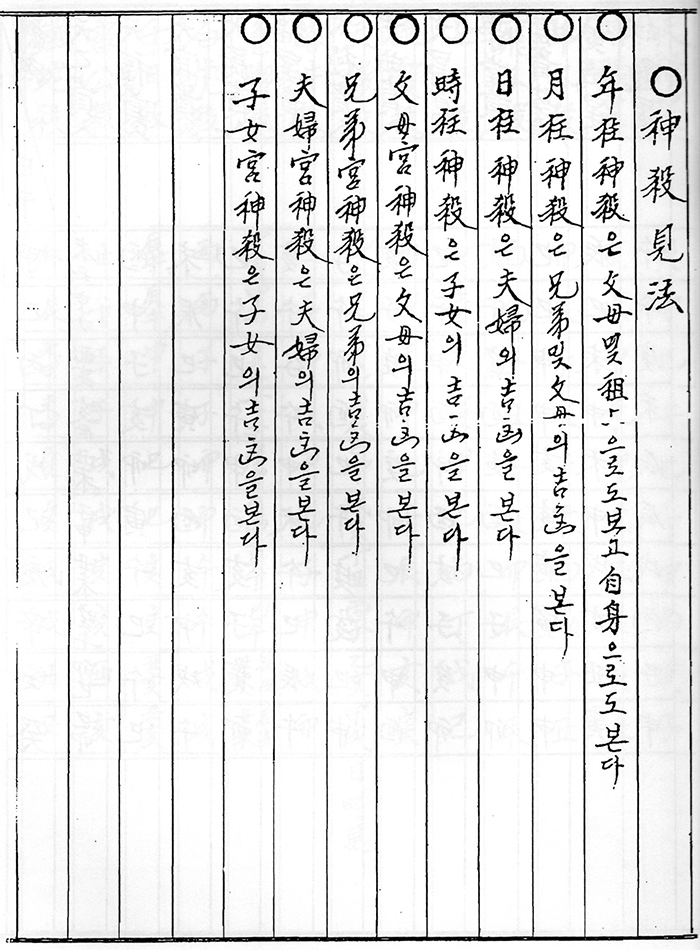 ○神殺見法
○年柱神殺은 父母 및 祖上으로도 보고 自身으로도 본다
○月柱神殺은 兄弟 및 父母의 吉凶을 본다
○日柱神殺은 夫婦의 吉凶을 본다
○時柱神殺은 子女의 吉凶을 본다
○父母宮神殺은 父母의 吉凶을 본다
○兄弟宮神殺은 兄弟의 吉凶을 본다
○夫婦宮神殺은 夫婦의 吉凶을 본다
○子女宮神殺은 子女의 吉凶을 본다